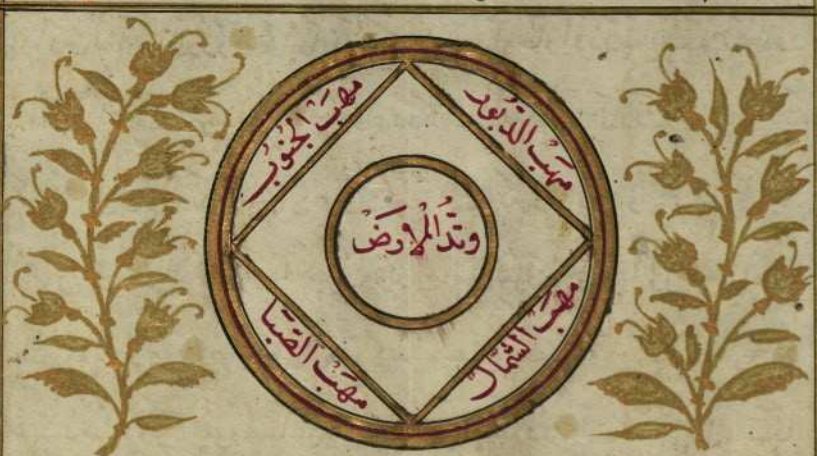 مهبّ الدبور
مهبّ الجنوب
وتد الارض
مهبّ الشمال
مهبّ الصبا